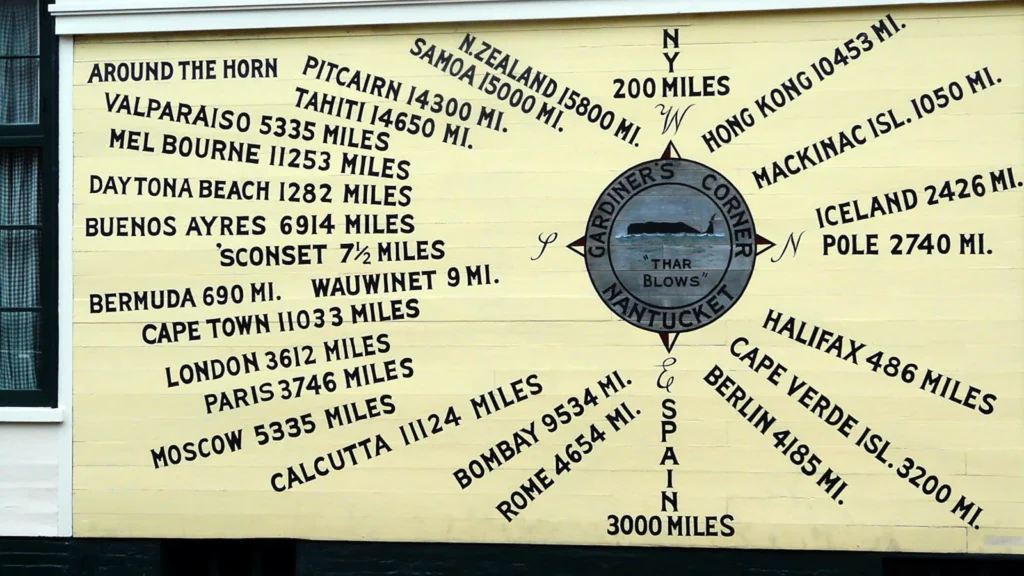 AROUND THE HORN
VALPARAISO 5335 MILES
MEL BOURNE 11253 MILES
DAYTONA BEACH 1282 MILES
BUENOS AYRES 6914 MILES
'SCONSET 7½ MILES
WAUWINET 9 MI.
BERMUDA 690 MI.
CAPE TOWN 11033 MILES
LONDON 3612 MILES
PARIS 3746 MILES
MOSCOW 5335 MILES
CALCUTTA 11124 MILES
BOMBAY 9534 MI.
ROME 4654 MI.
PITCAIRN 14300 MI.
TAHITI 14650 MI.
SAMOA 15000 MI.
N. ZEALAND 15800 MI.
NY
200 MILES
W
S
N
E
GARDINER'S CORNER
"THAR
BLOWS"
NANTUCKET
SPAIN
3000 MILES
HONG KONG 10453 MI.
MACKINAC ISL. 1050 MI.
ICELAND 2426 MI.
POLE 2740 MI.
HALIFAX 486 MILES
CAPE VERDE ISL. 3200 MI.
BERLIN 4185 MI.